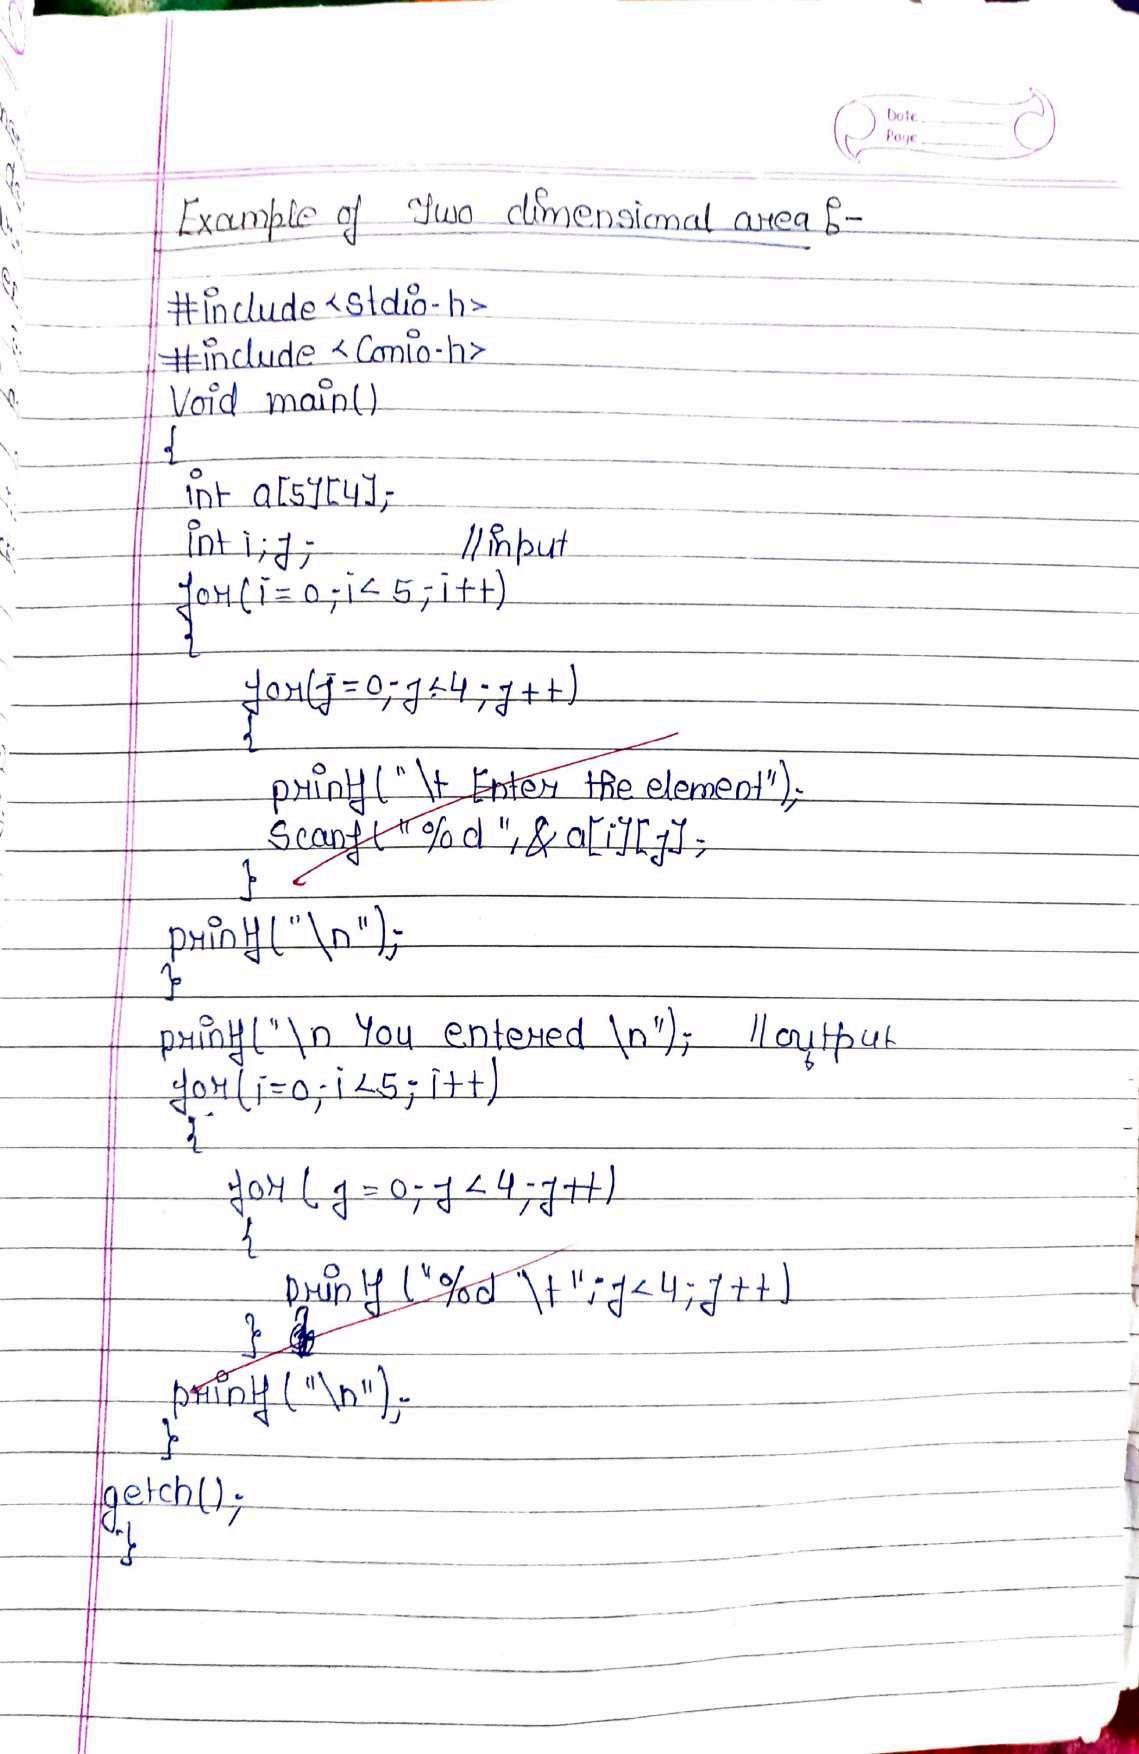 Date
Page
Example of Two dimensional area :-
#include <stdio.h>
#include <Conio.h>
Void main()
{
int a[5][4];
int i;j; //input
for(i=0;i<5;i++)
{
for(j=0;j<4;j++)
{
printf("\t Enter the element");
Scanf("%d",& a[i][j];
}
printf("\n");
}
printf("\n You entered \n"); //output
for(i=0;i<5;i++)
{
for(j=0;j<4;j++)
{
printf("%d \t";j<4;j++)
}
printf("\n");
}
getch();
}